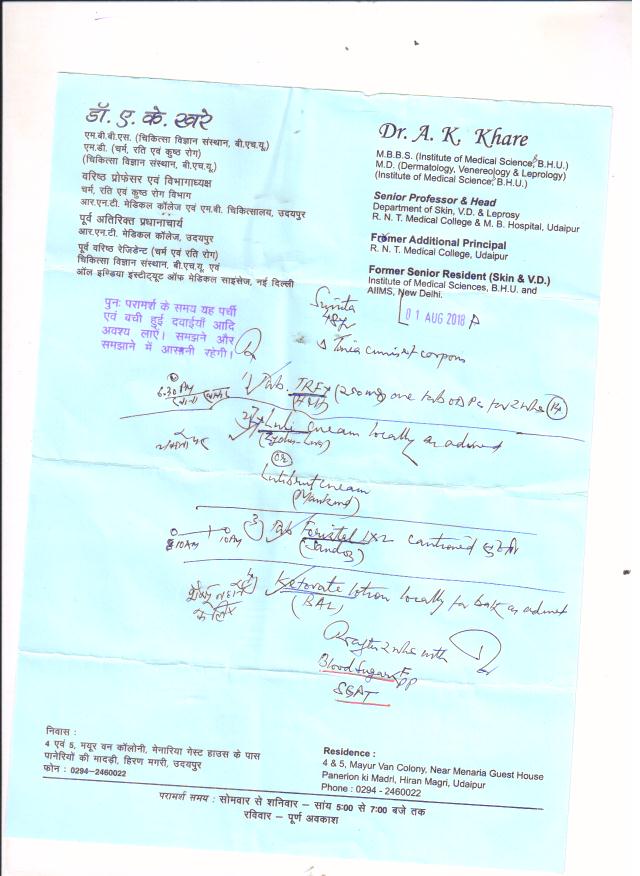 डॉ. ए. के. खरे
एम.बी.बी.एस. (चिकित्सा विज्ञान संस्थान, बी.एच.यू.)
एम.डी. (चर्म, रति एवं कुष्ठ रोग)
(चिकित्सा विज्ञान संस्थान, बी.एच.यू.)
वरिष्ठ प्रोफेसर एवं विभागाध्यक्ष
चर्म, रति एवं कुष्ठ रोग विभाग
आर.एन.टी. मेडिकल कॉलेज एवं एम.बी. चिकित्सालय, उदयपुर
पूर्व अतिरिक्त प्रधानाचार्य
आर.एन.टी. मेडिकल कॉलेज, उदयपुर
पूर्व वरिष्ठ रेजिडेन्ट (चर्म एवं रति रोग)
चिकित्सा विज्ञान संस्थान, बी.एच.यू. एवं
ऑल इण्डिया इंस्टीट्यूट ऑफ मेडिकल साइंसेज, नई दिल्ली
Dr. A. K. Khare
M.B.B.S. (Institute of Medical Science, B.H.U.)
M.D. (Dermatology, Venereology & Leprology)
(Institute of Medical Science, B.H.U.)
Senior Professor & Head
Department of Skin, V.D. & Leprosy
R. N. T. Medical College & M. B. Hospital, Udaipur
Former Additional Principal
R. N. T. Medical College, Udaipur
Former Senior Resident (Skin & V.D.)
Institute of Medical Sciences, B.H.U. and
AIIMS, New Delhi.
पुनः परामर्श के समय यह पर्ची
एवं बची हुई दवाईयाँ आदि
अवश्य लाएँ। समझने और
समझाने में आसानी रहेगी।
Sunita
01 AUG 2018
Tinea cruris et corporis
6.30 PM
1) Tab. (250mg) one tab OD PC for 2 wks (14)
2) cream locally as advised
OR
cream
(Mankind)
10AM 10PM
3) Tab 1x2
(Sandoz)
4) Ketovate lotion locally for bath as advised
(BAL)
R after 2 wks with
Blood Sugar F PP
SGPT
निवास :
4 एवं 5, मयूर वन कॉलोनी, मेनारिया गेस्ट हाउस के पास
पानेरियों की मादड़ी, हिरण मगरी, उदयपुर
फोन : 0294-2460022
Residence :
4 & 5, Mayur Van Colony, Near Menaria Guest House
Panerion ki Madri, Hiran Magri, Udaipur
Phone : 0294 - 2460022
परामर्श समय : सोमवार से शनिवार – सांय 5:00 से 7:00 बजे तक
रविवार – पूर्ण अवकाश